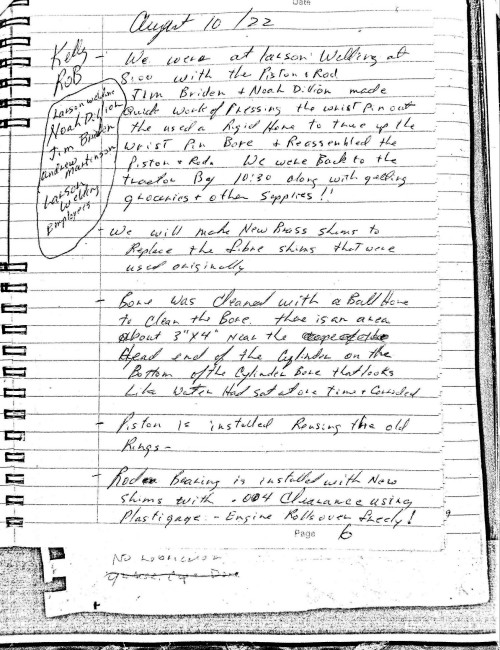 Date
August 10/22
Kelly
Rob
Larson welding
Noah Dillion
Jim Briden
andrew Martinson
Larson
Welding
Employees
- We were at Larson Welding at
8:00 with the Piston & Rod
Jim Briden & Noah Dillion made
Quick work of Pressing the wrist Pin out
the used a Rigid Hone to true up the
wrist Pin Bore & Reassembled the
Piston & Rod. We were Back to the
tractor By 10:30 along with getting
groceries & other Supplies!!
- We will make New Brass shims to
Replace the fibre shims that were
used originally
- Bore was Cleaned with a Ball Hone
to Clean the Bore. there is an area
about 3"x4" Near the
Head end of the Cylinder on the
Bottom of the Cylinder Bore that looks
Like Water Had sat at one time & Corroded
- Piston is installed Reusing the old
Rings -
- Rod Bearing is installed with New
shims with .004 Clearance using
Plastigage - Engine Rolls over freely!
Page 6
No